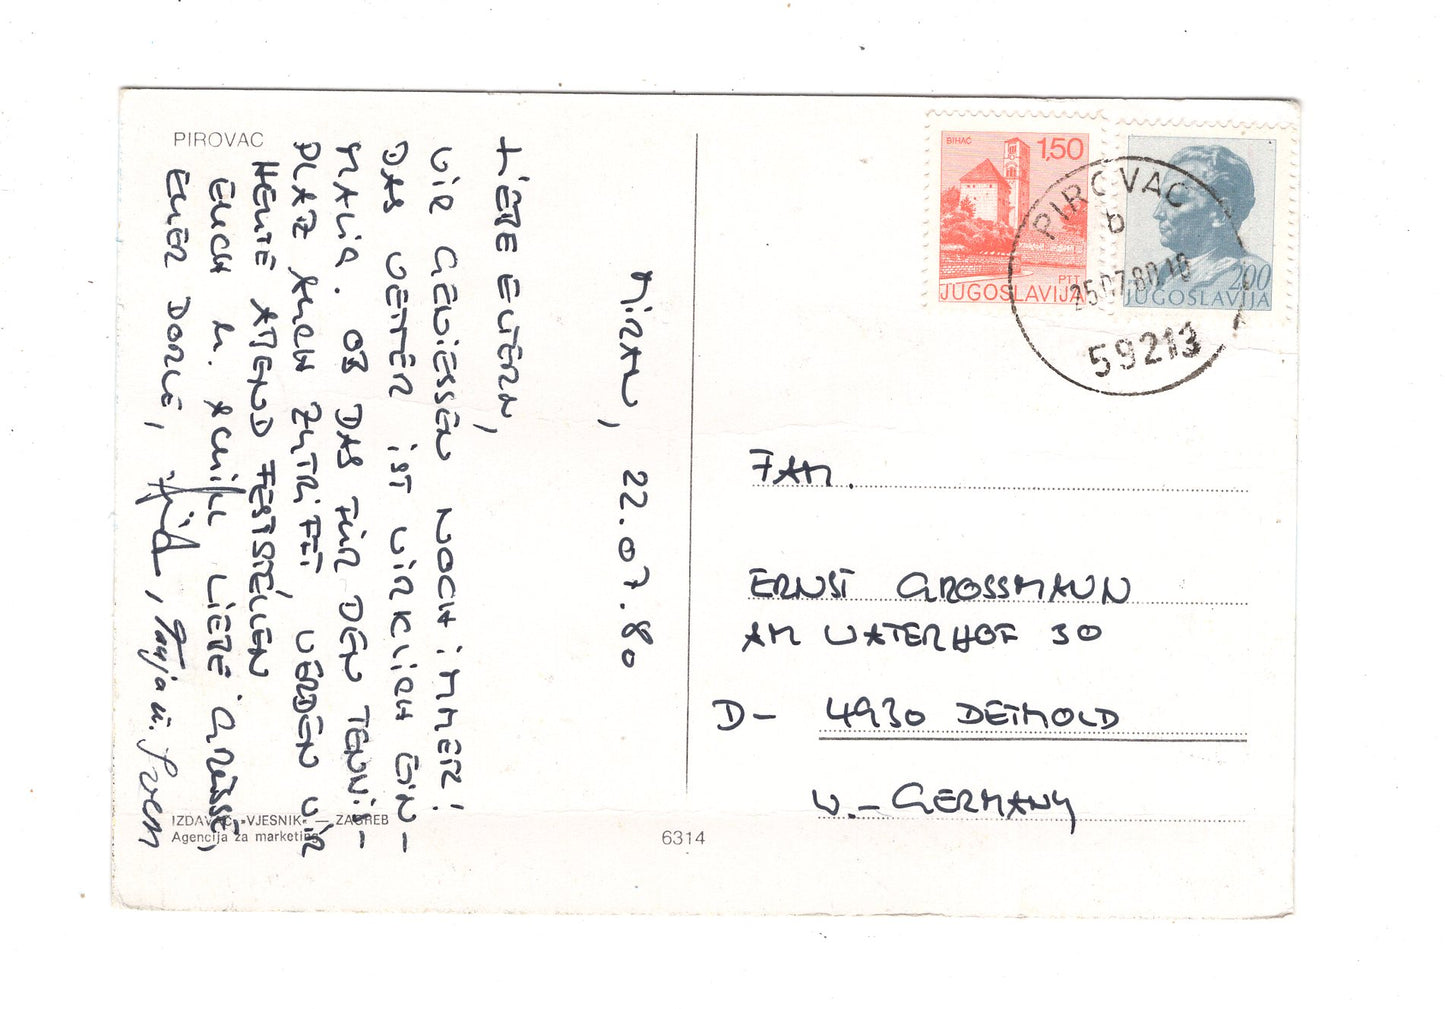 PIROVAC
MIRAN, 22.07.80
LIEBE ELTERN,
WIR GENIESSEN NOCH IMMER!
DAS WETTER IST WIRKLICH EIN-
MALIG. OB DAS FÜR DEN TENNIS-
PLATZ AUCH ZUTRIFFT, WERDEN WIR
HEUTE ABEND FESTSTELLEN
EUCH U. ACHIM LIEBE GRÜSSE,
EUER DORLE, , Tanja u. Sven
IZDAVAČ »VJESNIK« — ZAGREB
Agencija za marketing
6314
BIHAĆ
1,50
PTT
JUGOSLAVIJA
2,00
JUGOSLAVIJA
PIROVAC
b
25.07.80.18
59213
FAM.
ERNST GROSSMANN
AM WATERHOF 30
D- 4930 DETMOLD
W.-GERMANY